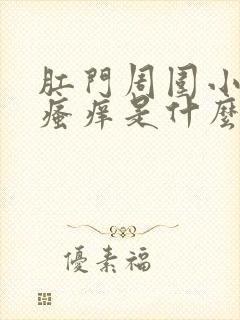 肛門周围小
瘙痒是什麼
優素福